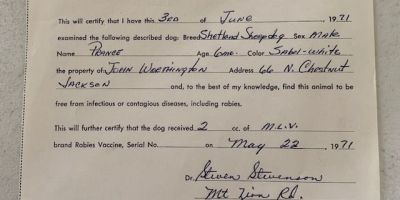 This will certify that I have this 3RD of June, 1971
examined the following described dog: Breed Shetland Sheepdog Sex Male
Name PRANCE Age 6mo. Color Sabel-White
the property of JOHN WORTHINGTON Address 66 N. Chestnut
JACKSON and, to the best of my knowledge, find this animal to be
free from infectious or contagious diseases, including rabies.
This will further certify that the dog received 2 cc. of M.L.V.
brand Rabies Vaccine, Serial No. on May 22, 1971
Dr. Steven Stevenson
Mt Zion Rd.